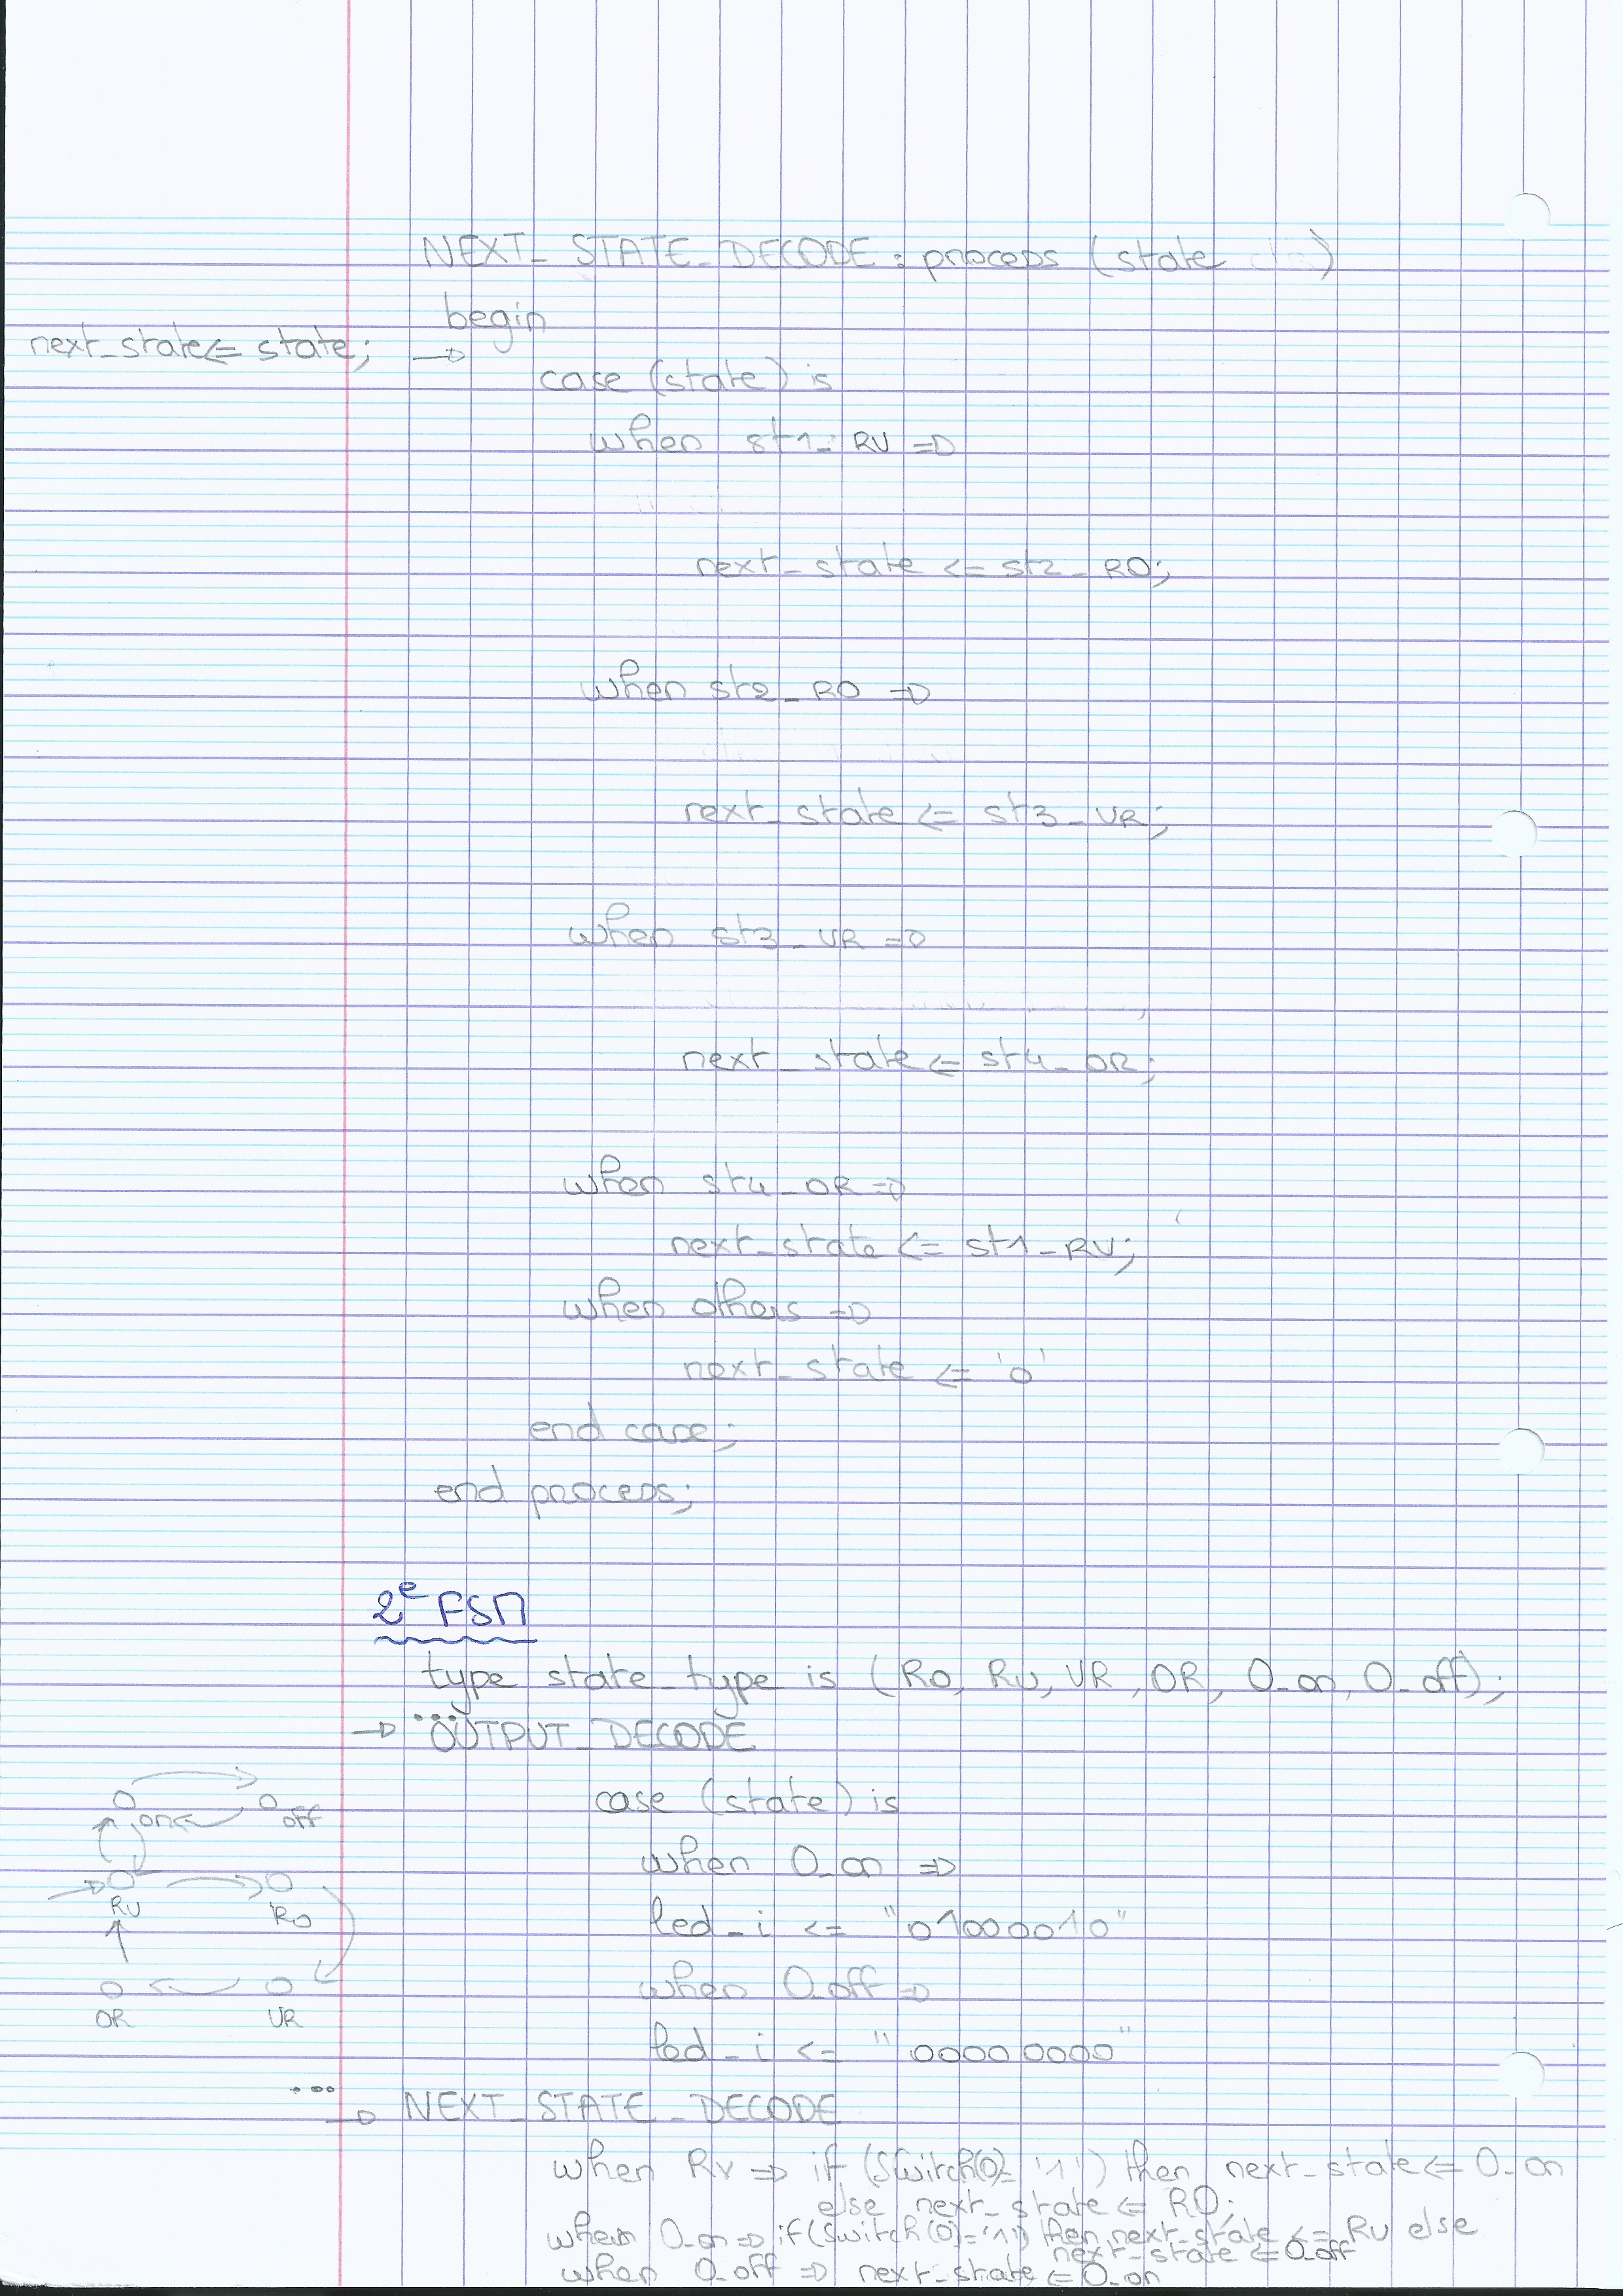 NEXT_STATE_DECODE : process (state )
begin
next_state <= state; →
case (state) is
when st1_RV =>
next_state <= st2_RO;
when st2_RO =>
next_state <= st3_VR;
when st3_VR =>
next_state <= st4_OR;
when st4_OR =>
next_state <= st1_RV;
when others =>
next_state <= '0'
end case;
end process;
2e FSM
type state_type is (RO, RV, VR, OR, O_on, O_off);
...
→ OUTPUT_DECODE
case (state) is
when O_on =>
led_i <= "01000010"
when O_off =>
led_i <= "00000000"
on off
RV RO
OR VR
...
→ NEXT_STATE_DECODE
when RV => if (Switch(0)= '1') then next_state <= O_on
else next_state <= RO;
when O_on => if (Switch(0)='1') then next_state <= RV else
next_state <= O_off
when O_off => next_state <= O_on